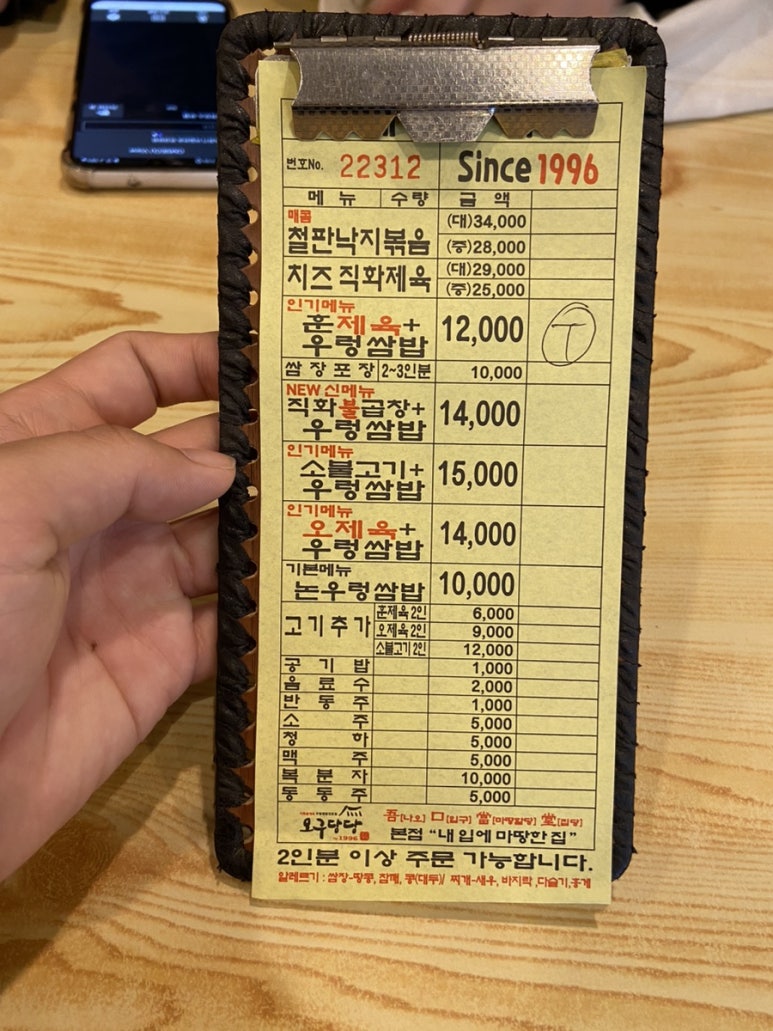 번호No. 22312 Since 1996
메뉴 수량 금액
매콤
철판낙지볶음 (대)34,000
(중)28,000
치즈 직화제육 (대)29,000
(중)25,000
인기메뉴
훈제육+
우렁쌈밥 12,000 T
쌈장포장 2~3인분 10,000
NEW 신메뉴
직화불곱창+
우렁쌈밥 14,000
인기메뉴
소불고기+
우렁쌈밥 15,000
인기메뉴
오제육+
우렁쌈밥 14,000
기본메뉴
논우렁쌈밥 10,000
고기추가 훈제육2인 6,000
오제육2인 9,000
소불고기2인 12,000
공기밥 1,000
음료수 2,000
반동주 1,000
소주 5,000
청하 5,000
맥주 5,000
복분자 10,000
동동주 5,000
오구당당 吾[나오] 口[입구] 當[마땅할당] 堂[집당]
since 1996 본점 “내 입에 마땅한 집”
2인분 이상 주문 가능합니다.
알레르기 : 쌈장-땅콩, 참깨, 콩(대두)/ 찌개-새우, 바지락 ,다슬기,홍게